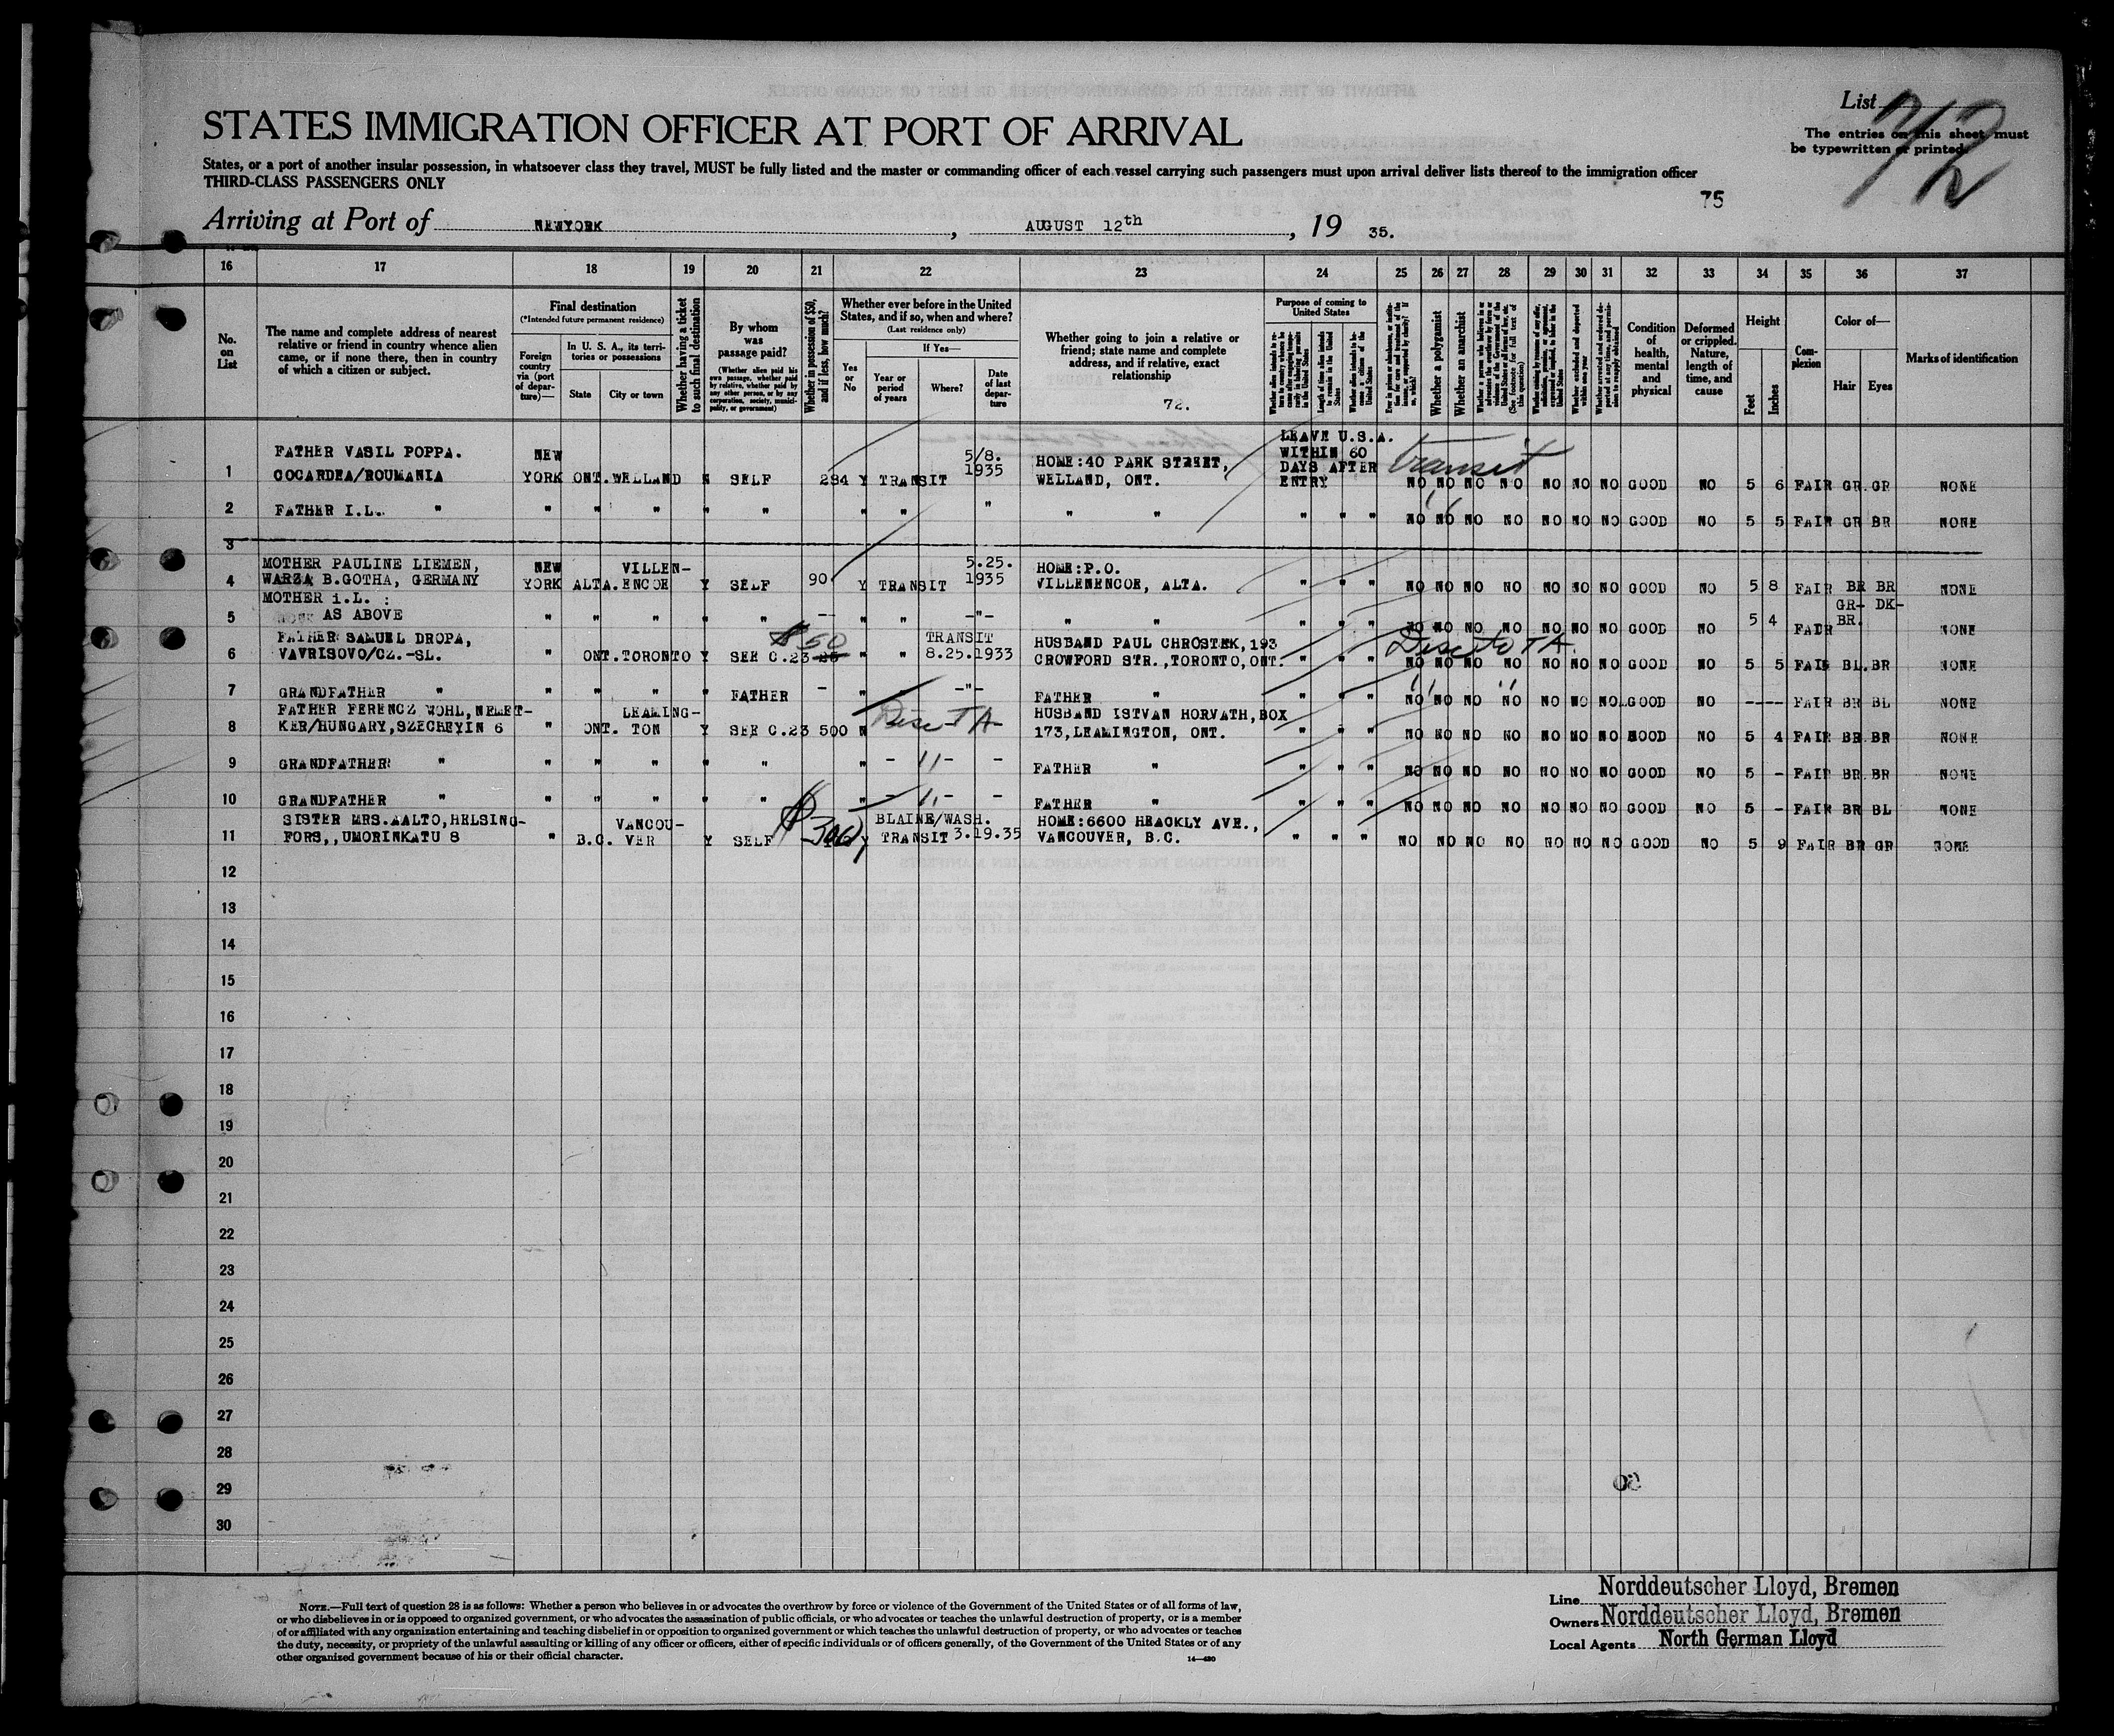 List 72
STATES IMMIGRATION OFFICER AT PORT OF ARRIVAL
The entries on this sheet must
be typewritten or printed.
States, or a port of another insular possession, in whatsoever class they travel, MUST be fully listed and the master or commanding officer of each vessel carrying such passengers must upon arrival deliver lists thereof to the immigration officer
THIRD-CLASS PASSENGERS ONLY
75
Arriving at Port of NEWYORK, AUGUST 12th, 19 35.
16 17 18 19 20 21 22 23 24 25 26 27 28 29 30 31 32 33 34 35 36 37
No. on List
The name and complete address of nearest relative or friend in country whence alien came, or if none there, then in country of which a citizen or subject.
Final destination
(*Intended future permanent residence)
Foreign country via (port of departure)—
In U. S. A., its territories or possessions
State
City or town
Whether having a ticket to such final destination
By whom was passage paid?
(Whether alien paid his own passage, whether paid by relative, whether paid by any other person, or by any corporation, society, municipality, or government)
Whether in possession of $50, and if less, how much?
Whether ever before in the United States, and if so, when and where?
(Last residence only)
Yes or No
If Yes—
Year or period of years
Where?
Date of last departure
Whether going to join a relative or friend; state name and complete address, and if relative, exact relationship
72.
Purpose of coming to United States
Length of time alien intends to remain in the United States
Whether alien intends to become a citizen of the United States
Whether a polygamist
Whether an anarchist
Condition of health, mental and physical
Deformed or crippled. Nature, length of time, and cause
Height
Feet
Inches
Complexion
Color of—
Hair
Eyes
Marks of identification
LEAVE U.S.A.
WITHIN 60
DAYS AFTER
ENTRY
transit
FATHER VASIL POPPA. NEW 5/8.
1 COCARDEA/ROUMANIA YORK ONT. WELLAND N SELF 284 Y TRANSIT 1935 HOME:40 PARK STREET, WELLAND, ONT. NO NO NO NO NO NO NO GOOD NO 5 6 FAIR GR. GR NONE
2 FATHER I.L. " " " " " " " " " " " " " " NO NO NO NO NO NO NO GOOD NO 5 5 FAIR GR BR NONE
3
MOTHER PAULINE LIEMEN, NEW VILLEN- 5.25. HOME:P.O.
4 WARZA B.GOTHA, GERMANY YORK ALTA. ENCOE Y SELF 90 Y TRANSIT 1935 VILLENENCOE, ALTA. " " " NO NO NO NO NO NO NO GOOD NO 5 8 FAIR BR BR NONE
MOTHER i.L. : GR- DK-
5 AS ABOVE " " " " " -- " " -"- " " " " " NO NO NO NO NO NO NO GOOD NO 5 4 FAIR BR. NONE
FATHER SAMUEL DROPA, $50 TRANSIT HUSBAND PAUL CHROSTEK, 193
6 VAVRISOVO/CZ.-SL. " ONT. TORONTO Y SEE C.23 " " 8.25.1933 CROWFORD STR.,TORONTO,ONT. " " " NO NO NO NO NO NO NO GOOD NO 5 5 FAIR BL. BR NONE
7 GRANDFATHER " " " " " FATHER - " " -"- FATHER " " " " NO NO NO NO NO NO NO GOOD NO ---- FAIR BR BL NONE
FATHER FERENCZ WOHL, NEMET- LEAMING- HUSBAND ISTVAN HORVATH, BOX
8 KER/HUNGARY,SZECHEYIN 6 " ONT. TON Y SEE C.23 500 N 173, LEAMINGTON, ONT. " " " NO NO NO NO NO NO NO GOOD NO 5 4 FAIR BR. BR NONE
9 GRANDFATHER " " " " " " " - " - - FATHER " " " " NO NO NO NO NO NO NO GOOD NO 5 - FAIR BR. BR NONE
10 GRANDFATHER " " " " " " " - " - - FATHER " " " " NO NO NO NO NO NO NO GOOD NO 5 - FAIR BR BL NONE
SISTER MRS.AALTO,HELSING- VANCOU- BLAINE/WASH. HOME:6600 HEACKLY AVE.,
11 FORS,,UMORINKATU 8 " B.C. VER Y SELF $300 Y TRANSIT 3.19.35 VANCOUVER, B.C. " " " NO NO NO NO NO NO NO GOOD NO 5 9 FAIR BR GR NONE
12
13
14
15
16
17
18
19
20
21
22
23
24
25
26
27
28
29
30
NOTE.—Full text of question 28 is as follows: Whether a person who believes in or advocates the overthrow by force or violence of the Government of the United States or of all forms of law,
or who disbelieves in or is opposed to organized government, or who advocates the assassination of public officials, or who advocates or teaches the unlawful destruction of property, or is a member
of or affiliated with any organization entertaining and teaching disbelief in or opposition to organized government or which teaches the unlawful destruction of property, or who advocates or teaches
the duty, necessity, or propriety of the unlawful assaulting or killing of any officer or officers, either of specific individuals or of officers generally, of the Government of the United States or of any
other organized government because of his or their official character.
14—480
Line Norddeutscher Lloyd, Bremen
Owners Norddeutscher Lloyd, Bremen
Local Agents North German Lloyd